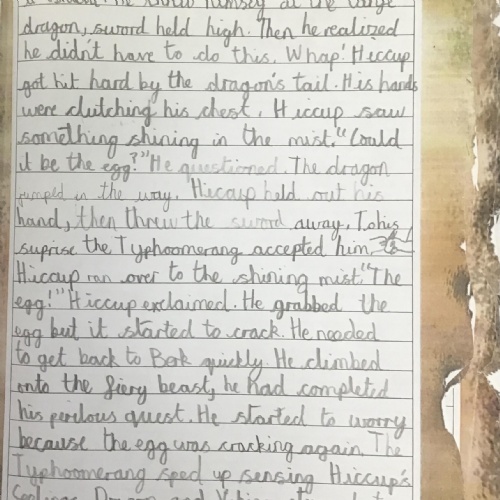 himself at the large
dragon, sword held high. Then he realized
he didn't have to do this. Whap! Hiccup
got hit hard by the dragon's tail. His hands
were clutching his chest. Hiccup saw
something shining in the mist. "Could
it be the egg?" He questioned. The dragon
jumped in the way. Hiccup held out his
hand, then threw the sword away. To his
suprise the Typhoomerang accepted him.
Hiccup ran over to the shining mist. "The
egg!" Hiccup exclaimed. He grabbed the
egg but it started to crack. He needed
to get back to Berk quickly. He climbed
onto the fiery beast, he had completed
his perilous quest. He started to worry
because the egg was cracking again. The
Typhoomerang sped up sensing Hiccup's